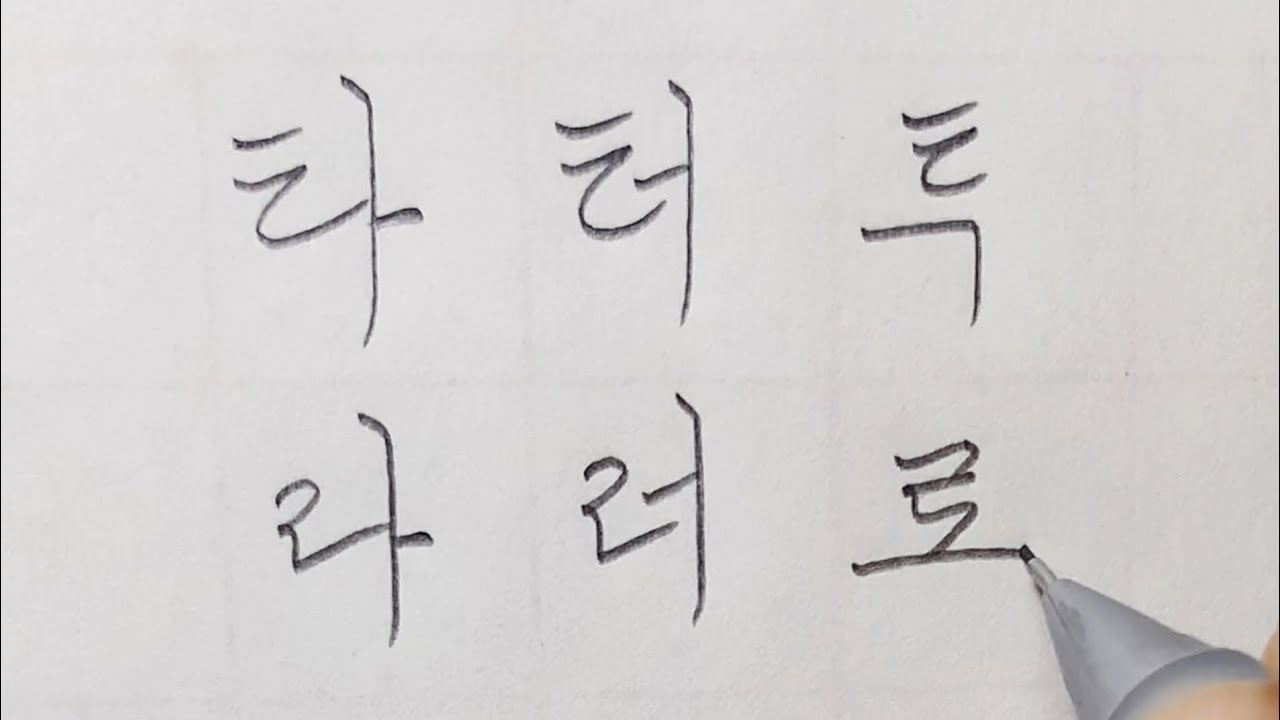 타 터 투
라 러 로